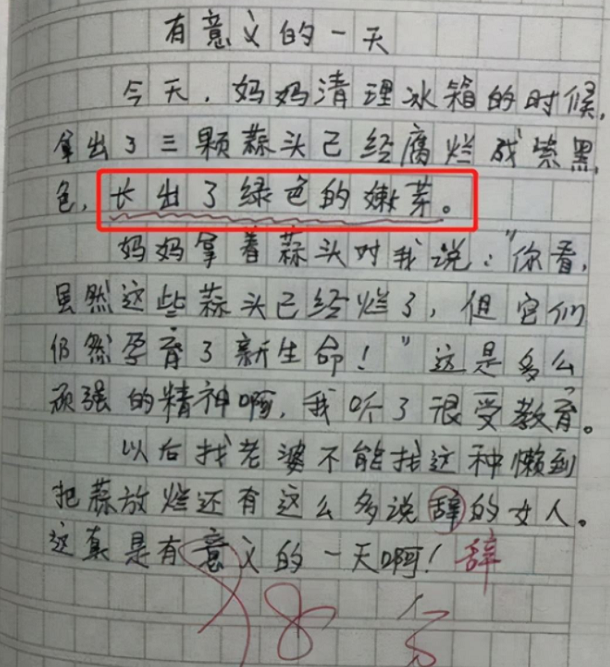 有意义的一天
今天，妈妈清理冰箱的时候，
拿出了三颗蒜头已经腐烂成紫黑
色，长出了绿色的嫩芽。
妈妈拿着蒜头对我说：“你看，
虽然这些蒜头已经烂了，但它们
仍然孕育了新生命！”这是多么
顽强的精神啊，我听了很受教育。
以后找老婆不能找这种懒到
把蒜放烂还有这么多说辞的女人。
这真是有意义的一天啊！辞
98